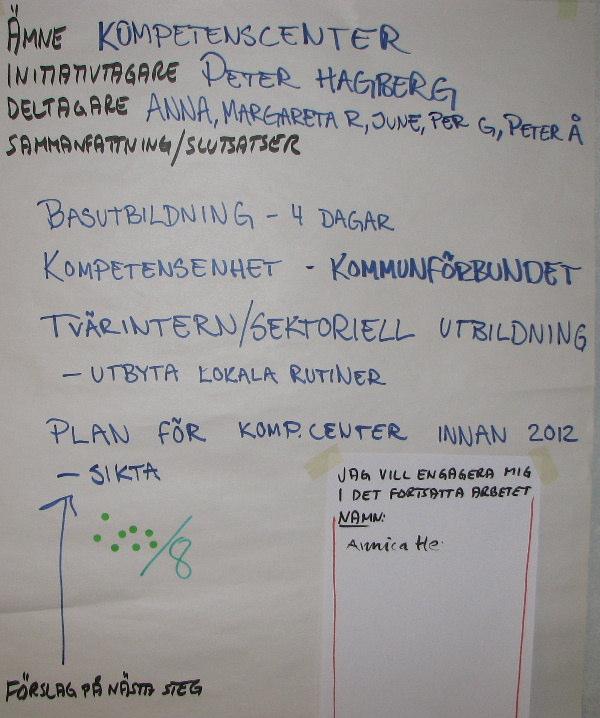 ÄMNE KOMPETENSCENTER
INITIATIVTAGARE PETER HAGBERG
DELTAGARE ANNA, MARGARETA R, JUNE, PER G, PETER Å
SAMMANFATTNING/SLUTSATSER
BASUTBILDNING - 4 DAGAR
KOMPETENSENHET - KOMMUNFÖRBUNDET
TVÄRINTERN/SEKTORIELL UTBILDNING
- UTBYTA LOKALA RUTINER
PLAN FÖR KOMP.CENTER INNAN 2012
- SIKTA
/8
FÖRSLAG PÅ NÄSTA STEG
JAG VILL ENGAGERA MIG
I DET FORTSATTA ARBETET
NAMN:
Annica He